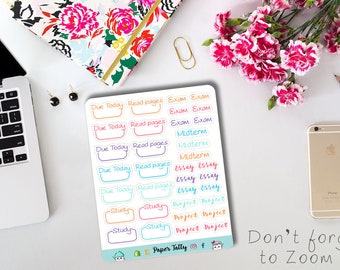 Due Today Read pages Exam Exam
Exam Exam
Due Today Read pages Exam Exam
Midterm
Due Today Read pages Midterm
Midterm
Due Today Read pages Essay Essay
Essay Essay
Due Today Read pages Essay Essay
Study Study Project Project
Project Project
Study Study Project Project
Paper Tally
Don't forg
to Zoom